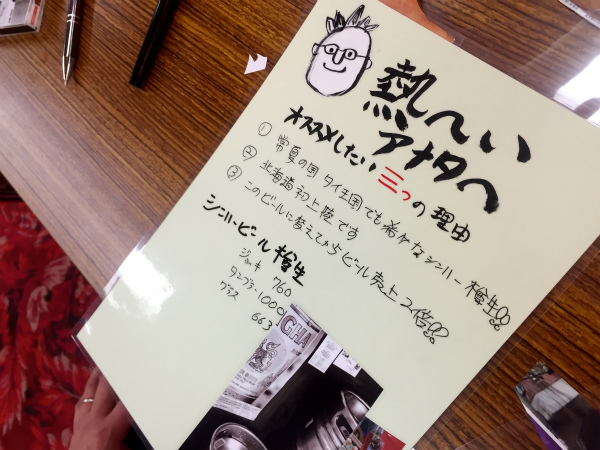 熱〜い
アナタへ
オススメしたい三つの理由
① 常夏の国 タイ王国でも希少なシンハー樽生!!
② 北海道初上陸です
③ このビールに変えてからビール売上2倍!!
シンハービール樽生
ジョッキ 760
タンブラー 1000
グラス 663
GHA